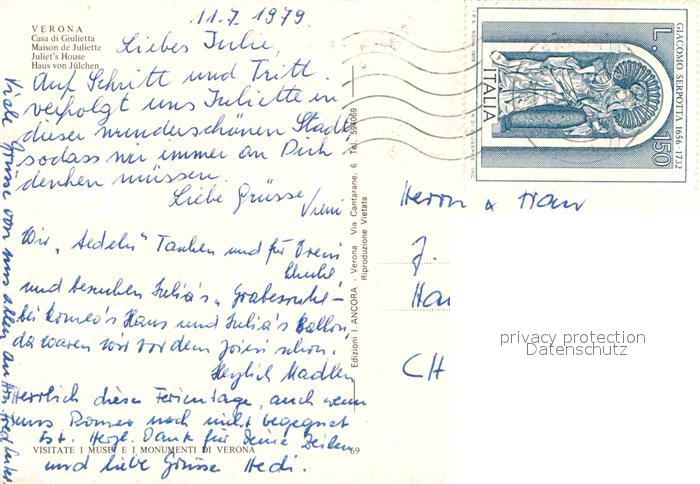 11.7.1979
VERONA
Casa di Giulietta
Maison de Juliette
Juliet's House
Haus von Jülchen
Liebes Julie,
Auf Schritt und Tritt
verfolgt uns Juliette in
dieser wunderschönen Stadt,
sodass wir immer an Dich
denken müssen.
Liebe Grüsse
Vreni
Wir „ Tauben und für Vreni
und besuchen Julia's „Grabesruhe"
bei Romeo's Haus und Julia's Ballon,
da waren wir vor dem schon.
Herzlich Madlen
Herrlich diese Ferientage, auch wenn
uns Romeo noch nicht begegnet
ist. Herzl. Dank für Deine Zeilen
und liebe Grüsse Hedi.
VISITATE I MUSEI E I MONUMENTI DI VERONA
69
Viele Grüsse von uns allen an
Edizioni I. ANCORA - Verona Via Cantarane, 6 Tel. 594069
Riproduzione Vietata
GIACOMO SERPOTTA 1656-1732
L. 150
ITALIA
Herrn & Frau
J.
CH
privacy protection
Datenschutz